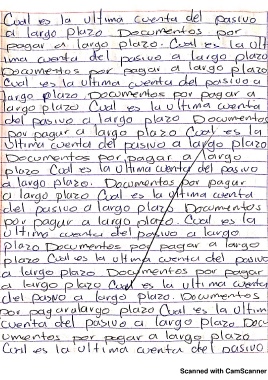 Cual es la ultima cuenta del pasivo
a largo plazo Documentos por
pagar a largo plazo. Cual es la ult
ima cuenta del pasivo a largo plazo
Documentos por pagar a largo plazo
Cual es la ultima cuenta del pasivo a
largo plazo Documentos por pagar a
largo plazo Cual es la ultima cuenta
del pasivo a largo plazo Documentos
por pagar a largo plazo Cual es la
ultima cuenta del pasivo a largo plazo
Documentos por pagar a largo
plazo Cual es la ultima cuenta del pasivo
a largo plazo. Documentos por pagar
a largo plazo Cual es la ultima cuenta
del pasivo a largo plazo Documentos
por pagar a largo plazo Cual es la
ultimo cuenta del pasivo a largo
plazo Documentos por pagar a largo
plazo Cual es la ultima cuenta del pasivo
a largo plazo Documentos por pagar
a largo plazo Cual es la ultima cuenta
del pasivo a largo plazo. Documentos
por pagar a largo plazo Cual es la ultim
cuenta del pasivo a largo plazo Doc
umentos por pagar a largo plazo
Cual es la ultima cuenta del pasivo
Scanned with CamScanner